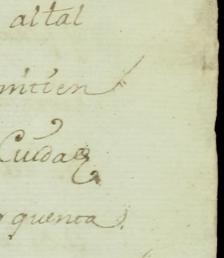 altal
mitien
Cuida
quenta